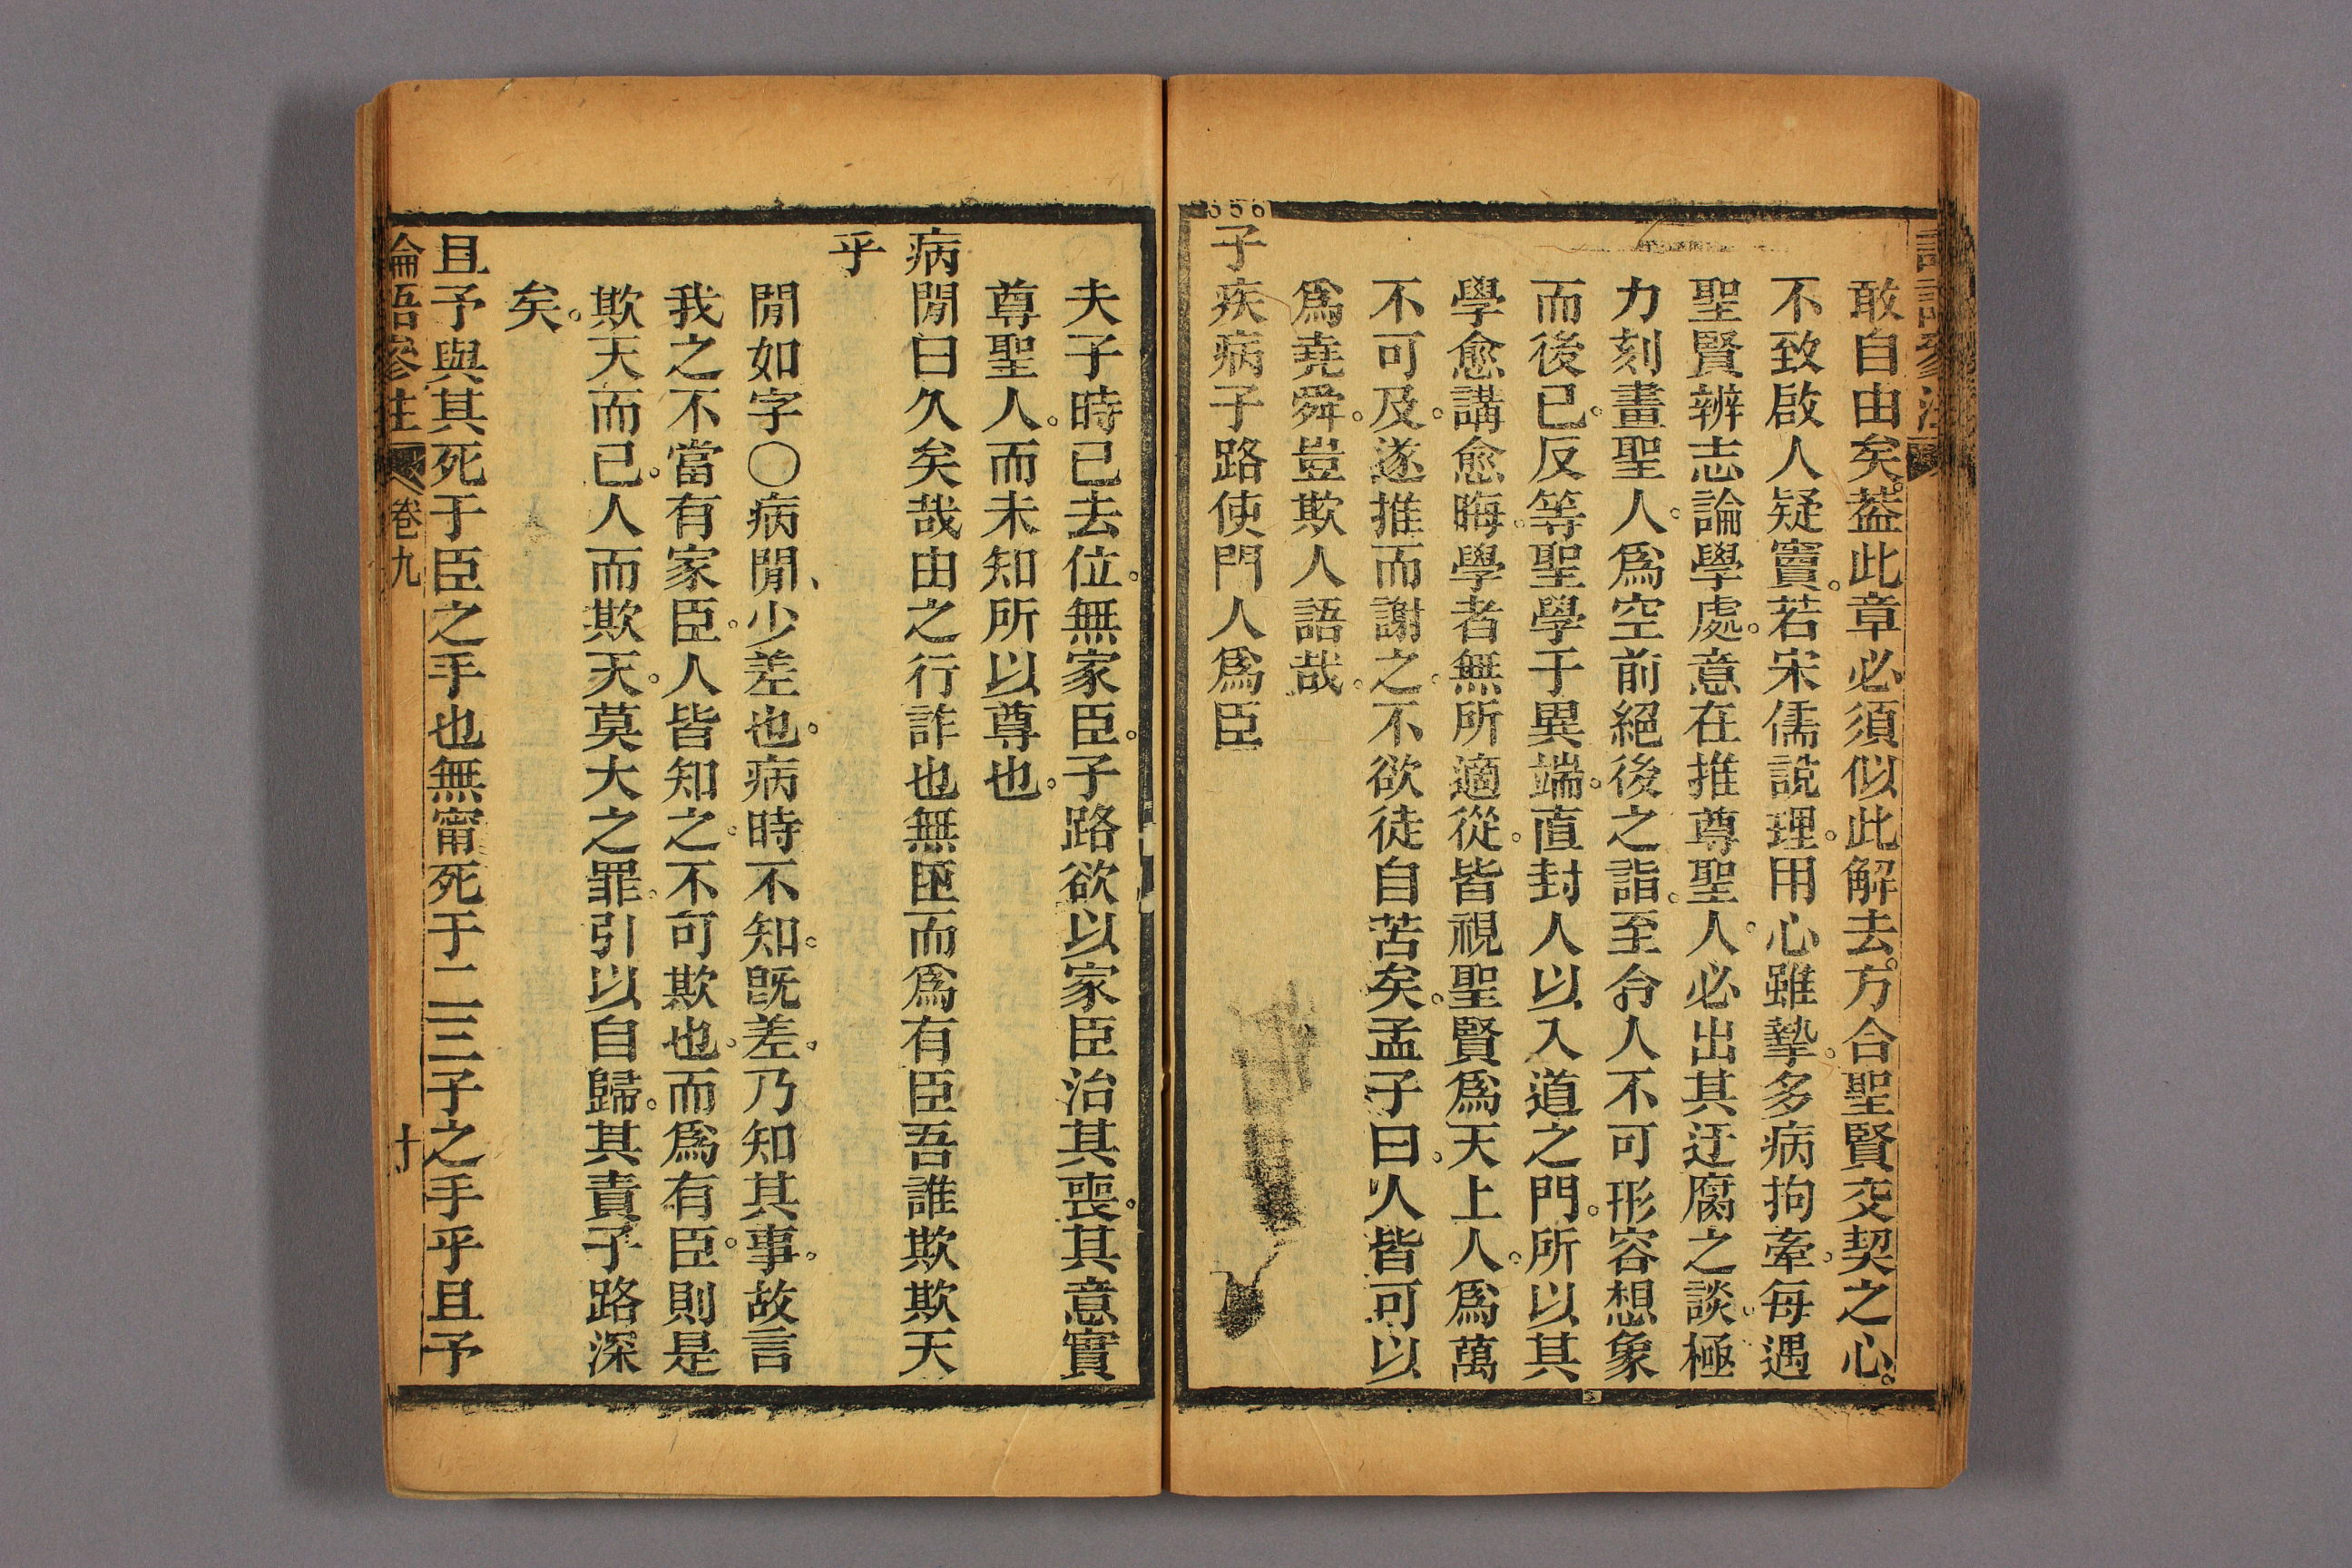 敢自由矣。葢此章必須似此解去。方合聖賢交契之心。
不致啟人疑竇。若宋儒説理。用心雖摯。多病拘牽。每遇
聖賢辨志論學處。意在推尊聖人。必出其迂腐之談。極
力刻畫聖人。爲空前絕後之詣。至令人不可形容想象
而後已。反等聖學于異端。直封人以入道之門。所以其
學愈講愈晦。學者無所適從。皆視聖賢爲天上人。爲萬
不可及。遂推而謝之。不欲徒自苦矣。孟子曰。人皆可以
爲堯舜。豈欺人語哉。
子疾病子路使門人爲臣
夫子時已去位。無家臣。子路欲以家臣治其喪。其意實
尊聖人。而未知所以尊也。
病閒曰久矣哉由之行詐也無臣而爲有臣吾誰欺欺天
乎
閒如字〇病閒、少差也。病時不知。旣差、乃知其事。故言
我之不當有家臣。人皆知之。不可欺也。而爲有臣。則是
欺天而已。人而欺天。莫大之罪。引以自歸。其責子路深
矣。
且予與其死于臣之手也無甯死于二三子之手乎且予
論語參注 卷九 十